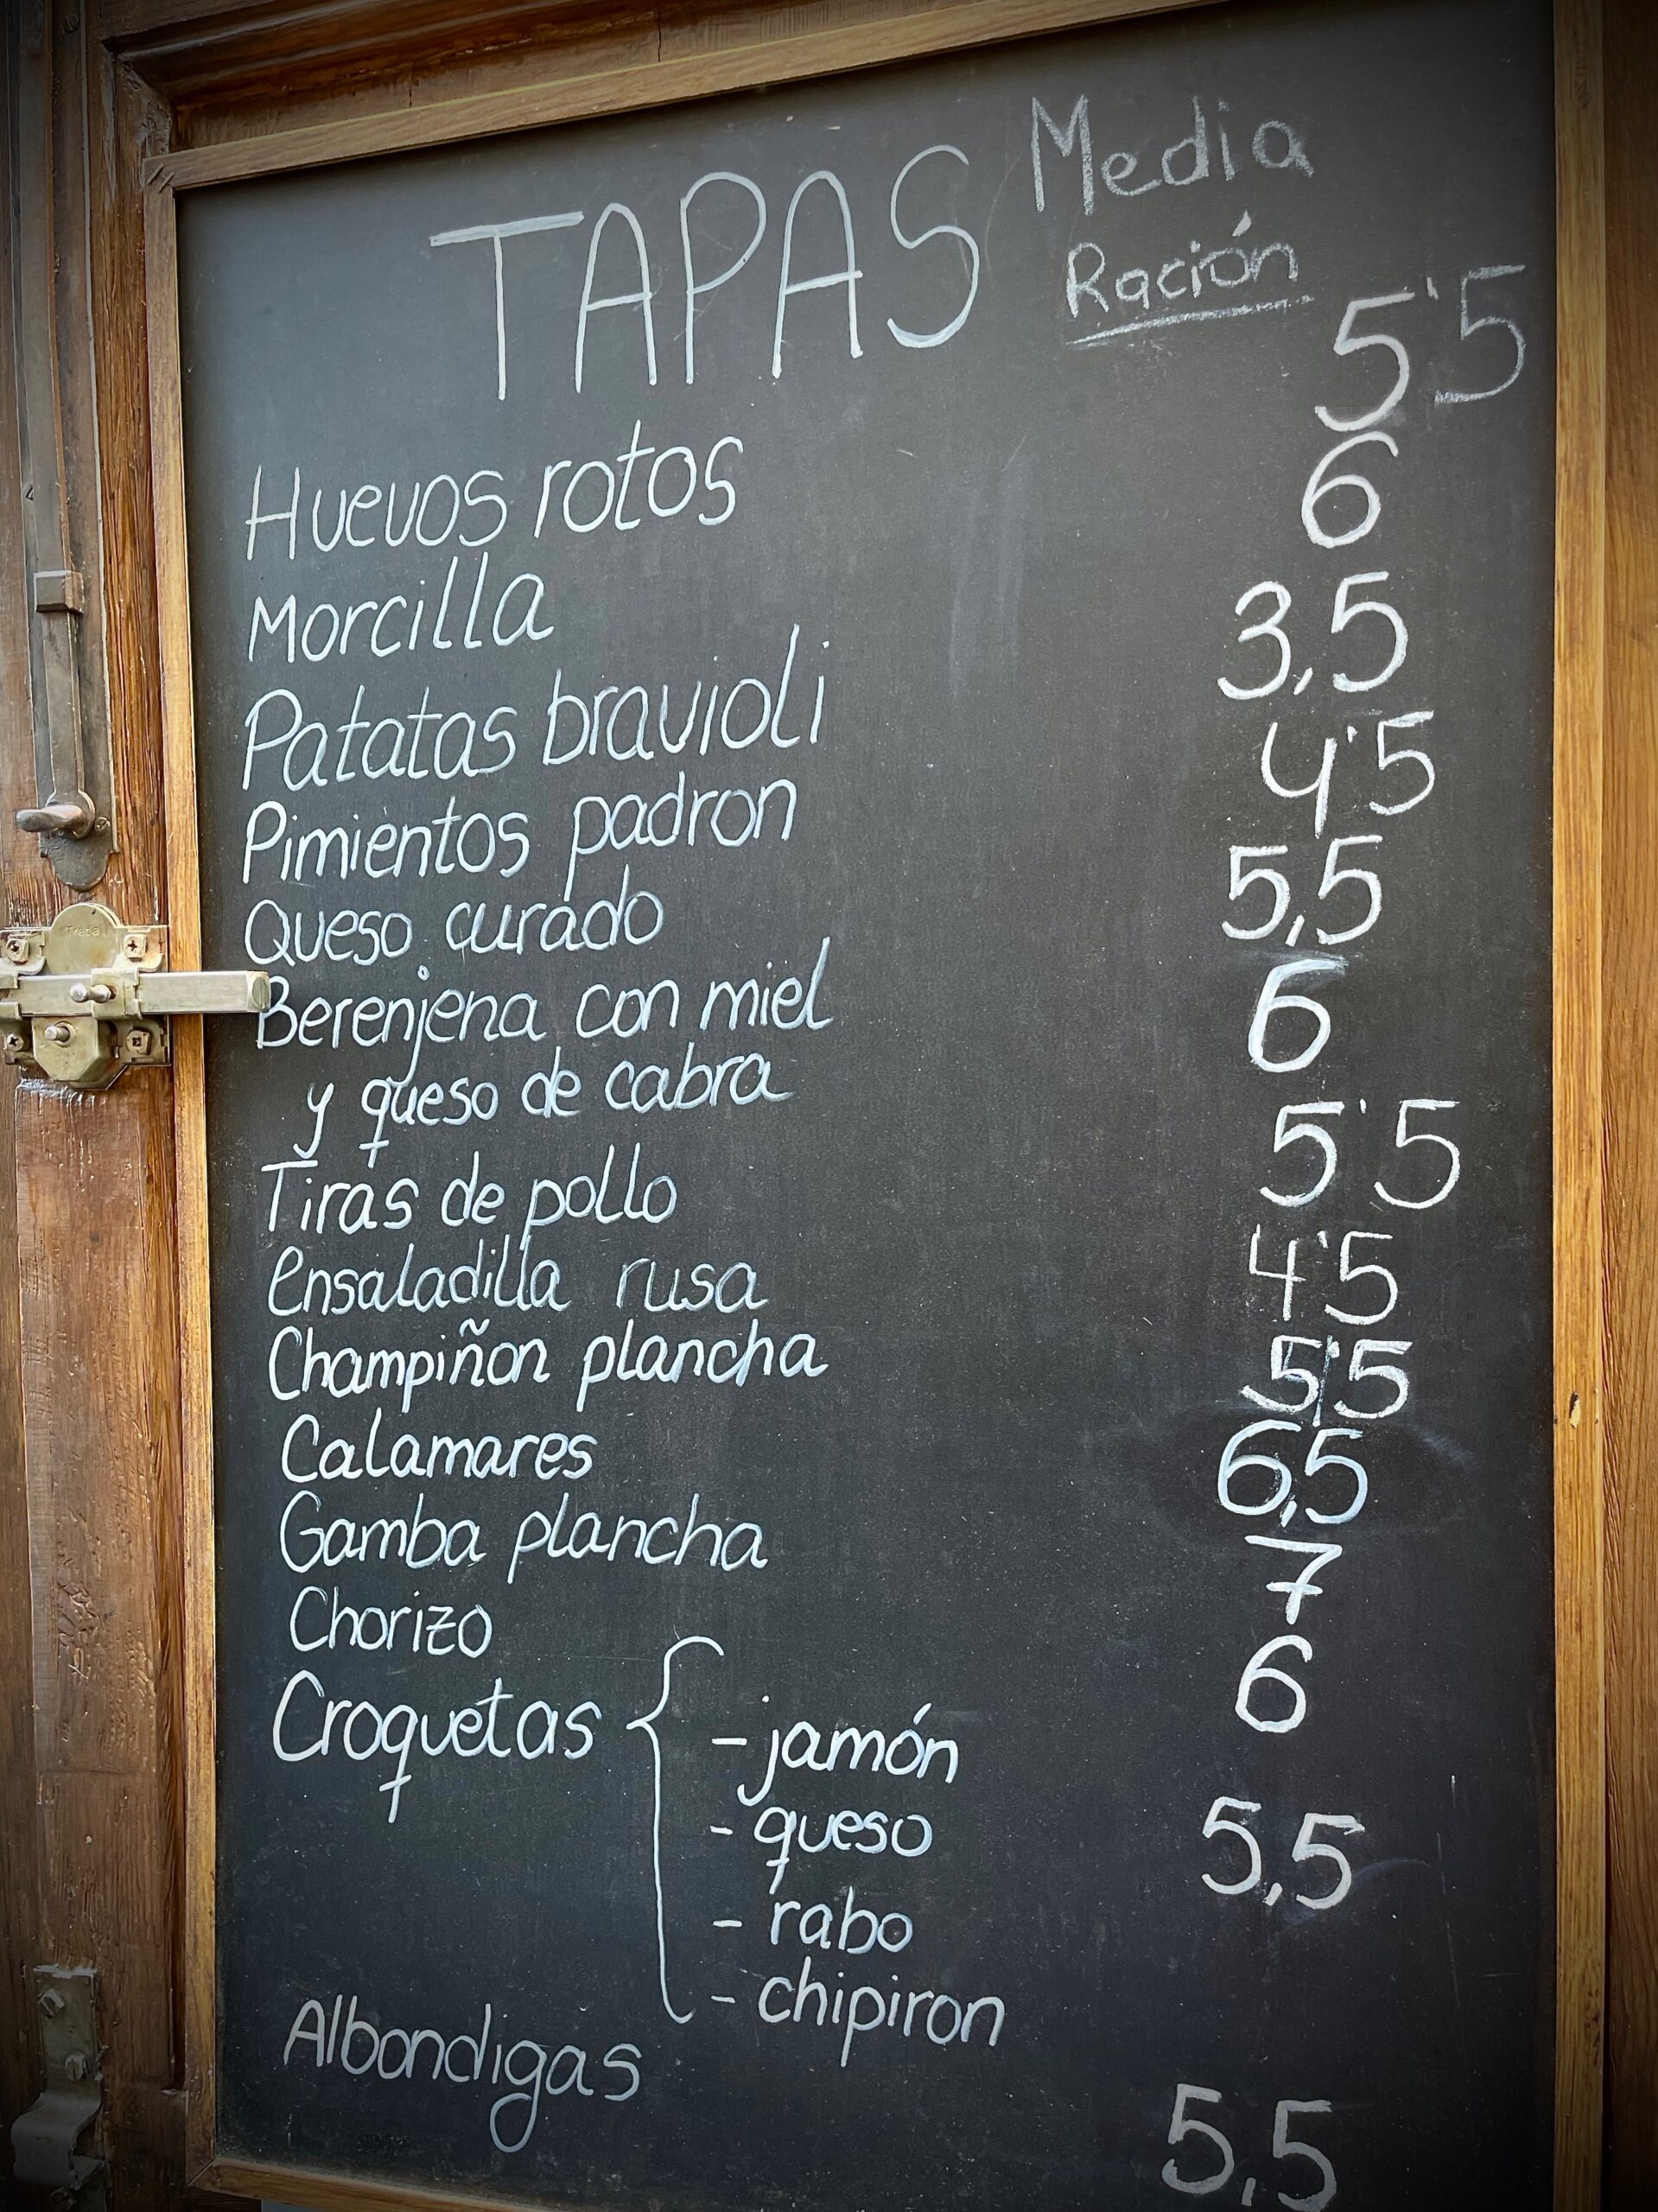 TAPAS Media
Ración
Huevos rotos 5'5
Morcilla 6
Patatas bravioli 3,5
Pimientos padron 4'5
Queso curado 5,5
Berenjena con miel 6
y queso de cabra
Tiras de pollo 5'5
Ensaladilla rusa 4'5
Champiñon plancha 5'5
Calamares 6,5
Gamba plancha 7
Chorizo 6
Croquetas { - jamón 5,5
- queso
- rabo
- chipiron
Albondigas 5,5